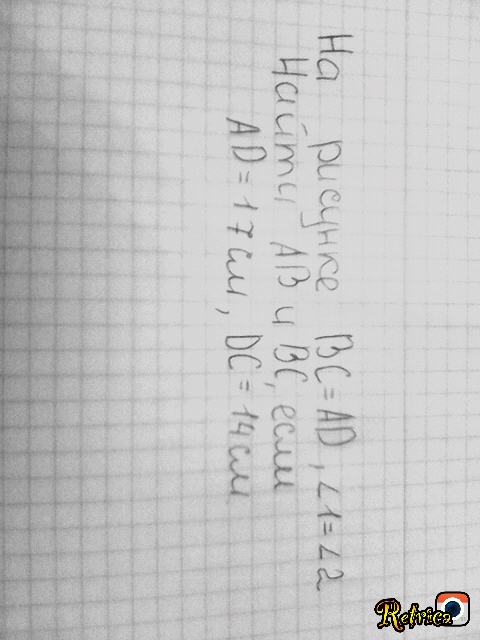 На рисунке BC=AD, ∠1=∠2
Найти AB и BC, если
AD=17см, DC=14см
Retrica